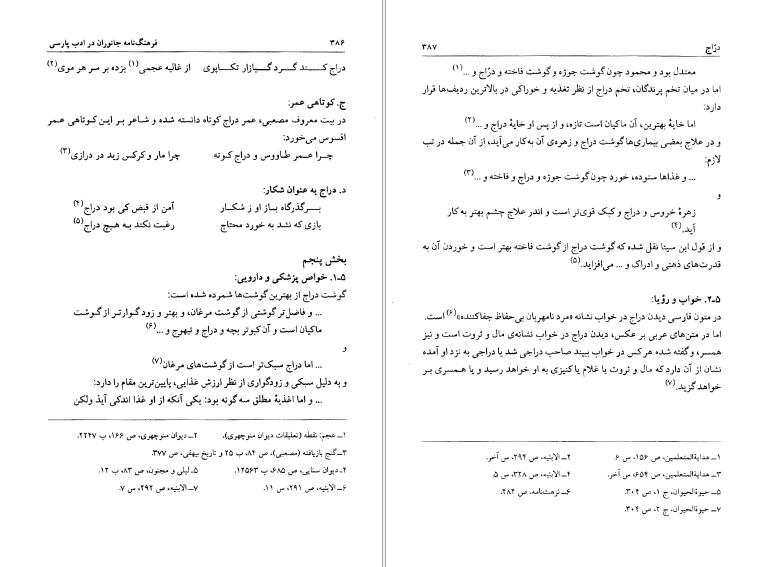 ۳۸۶ فرهنگ‌نامه جانوران در ادب پارسی
دراج کــنــد گــرد گــیازار تکـاپوی از غالیه عجمی(۱) بزده بر سر هر موی(۲)
ج. کوتاهی عمر:
در بیت معروف مصعبی، عمر دراج کوتاه دانسته شده و شـاعر بـر ایـن کـوتاهی عـمر
افسوس می‌خورد:
چـرا عـمر طـاووس و دراج کـوته چرا مار و کرکس زید در درازی(۳)
د. دراج به عنوان شکار:
بــرگذرگاه بـاز او ز شکـار آمن از قبض کی بود دراج(۴)
بازی که نشد به خورد محتاج رغبت نکند به هـیچ دراج(۵)
بخش پنجم
۱-۵. خواص پزشکی و دارویی:
گوشت دراج از بهترین گوشت‌ها شمرده شده است:
... و فاضل‌تر گوشتی از گوشت مرغان، و بهتر و زود گـوارتـر از گـوشت
ماکیان است و آن کبوتر بچه و دراج و تیهوج و ...(۶)
و
... اما دراج سبک‌تر است از گوشت‌های مرغان(۷)
و به دلیل سبکی و زودگواری از نظر ارزش غذایی، پایین‌ترین مقام را دارد:
... و اما اغذیهٔ مطلق سه گونه بود: یکی آنکه از او غذا اندکی آیذ ولکن
۱ـ عجم: نقطه (تعلیقات دیوان منوچهری). ۲ـ دیوان منوچهری، ص ۱۶۶، ب ۲۲۴۷.
۳ـ گنج بازیافته (مصعبی)، ص ۸۴، ب ۲۵ و تاریخ بیهقی، ص ۳۷۷.
۴ـ دیوان سنایی، ص ۶۸۵، ب ۱۲۵۶۳. ۵ـ لیلی و مجنون، ص ۸۳، ب ۱۲.
۶ـ الابنیه، ص ۲۹۱، س ۱۱. ۷ـ الابنیه، ص ۲۹۲، س ۷.
درّاج ۳۸۷
معتدل بود و محمود چون گوشت جوژه و گوشت فاخته و درّاج و ...(۱)
اما در میان تخم پرندگان، تخم دراج از نظر تغذیه و خوراکی در بالاترین ردیف‌ها قرار
دارد:
اما خایهٔ بهترین، آن ماکیان است تازه، و از پس او خایهٔ دراج و ...(۲)
و در علاج بعضی بیماری‌ها گوشت دراج و زهره‌ی آن به‌کار می‌آید، از آن جمله در تب
لازم:
... و غذاها ستوده، خورد چون گوشت جوژه و دراج و فاخته و ...(۳)
و
زهرهٔ خروس و دراج و کبک قوی‌تر است و اندر علاج چشم بهتر به‌کار
آید.(۴)
و از قول ابن سینا نقل شده که گوشت دراج از گوشت فاخته بهتر است و خوردن آن به
قدرت‌های ذهنی و ادراک و ... می‌افزاید.(۵)
۲-۵. خواب و رؤیا:
در متون فارسی دیدن دراج در خواب نشانه «مرد نامهربان بی‌حفاظ جفاکننده»(۶) است.
اما در متن‌های عربی بر عکس، دیدن دراج در خواب نشانه‌ی مال و ثروت است و نیز
همسر، وگفته شده هرکس در خواب بیند صاحب دراجی شد یا دراجی به نزد او آمده
نشان از آن دارد که مال و ثروت یا غلام یا کنیزی به او خواهد رسید و یا همسری بـر
خواهد گزید.(۷)
۱ـ هدایةالمتعلمین، ص ۱۵۶، س ۶. ۲ـ الابنیه، ص ۲۹۴، س آخر.
۳ـ هدایةالمتعلمین، ص ۶۵۴، س آخر. ۴ـ الابنیه، ص ۳۲۸، س ۵.
۵ـ حیوةالحیوان، ج ۱، ص ۳۰۴. ۶ـ نزهت‌نامه، ص ۴۸۴.
۷ـ حیوةالحیوان، ج ۲، ص ۳۰۴.